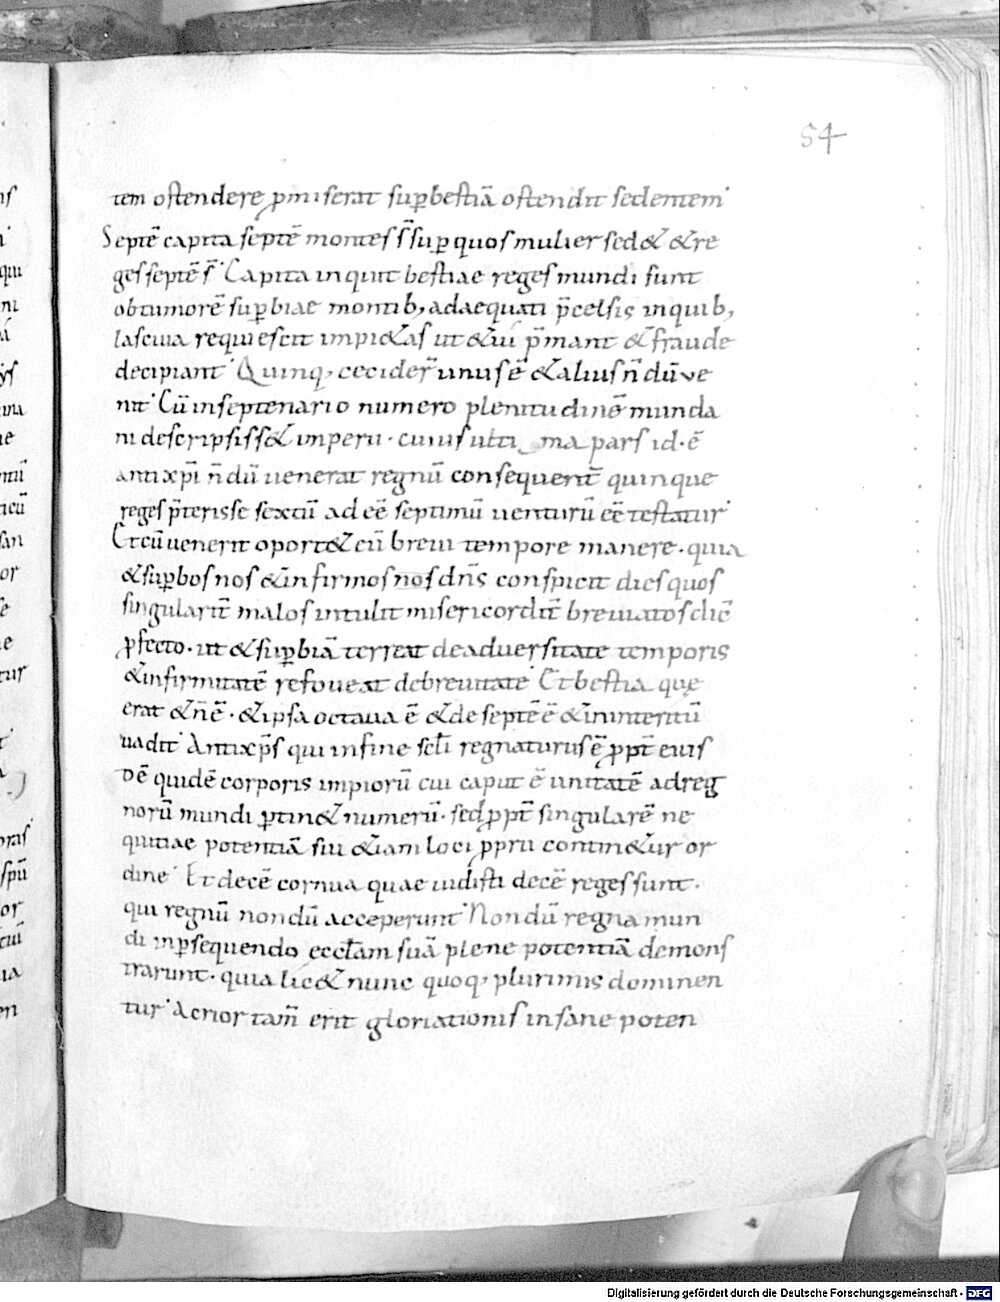 54
tem ostendere ꝓmiserat suꝑ bestiā ostendit sedentem
Septē capita septē montes s̄ suꝑ quos mulier sed& & re
ges septē s̄ Capita inquit bestiae reges mundi sunt
ob tumorē suꝑbiae montib; adaequati p̄celsis in quib;
lasciua requiescit impi&as ut & ui p̄mant & fraude
decipiant Quinq; cecider̄ unus ē & alius n̄dū ue
nit Cū in septenario numero plenitudinē munda
ni descripsiss& imperii · cuius ulti ma pars id · ē
antixp̄i n̄dū uenerat regnū consequent̄ quinque
reges p̄terisse sextū adeē septimū uenturū eē testatur
Et cū uenerit oport& eū breui tempore manere · quia
& suꝑbos nos & infirmos nos dn̄s conspicit dies quos
singularit̄ malos intulit misericordit̄ breuiatos dic̄
ꝓfecto · ut & suꝑbiā terreat de aduersitate temporis
& infirmitatē refoueat de breuitate Et bestia quę
erat & n̄ ē · & ipsa octaua ē & de septē ē & in interitū
uadit Antixp̄s qui in fine scl̄i regnaturus ē ꝓpt̄ eius
dē quidē corporis impiorū cui caput ē unitatē ad reg
norū mundi ꝑtin& numerū · sed ꝓpt̄ singularē ne
quitiae potentiā sui &iam loci ꝓprii contin&ur or
dine Et decē cornua quae uidisti decē reges sunt ·
qui regnū nondū acceperunt Nondū regna mun
di in ꝑsequendo eccl̄am suā plene potentiā demons
trarunt · quia lic& nunc quoq; plurimis dominen
tur Acrior tam̄ erit gloriationis insane poten
Digitalisierung gefördert durch die Deutsche Forschungsgemeinschaft - DFG